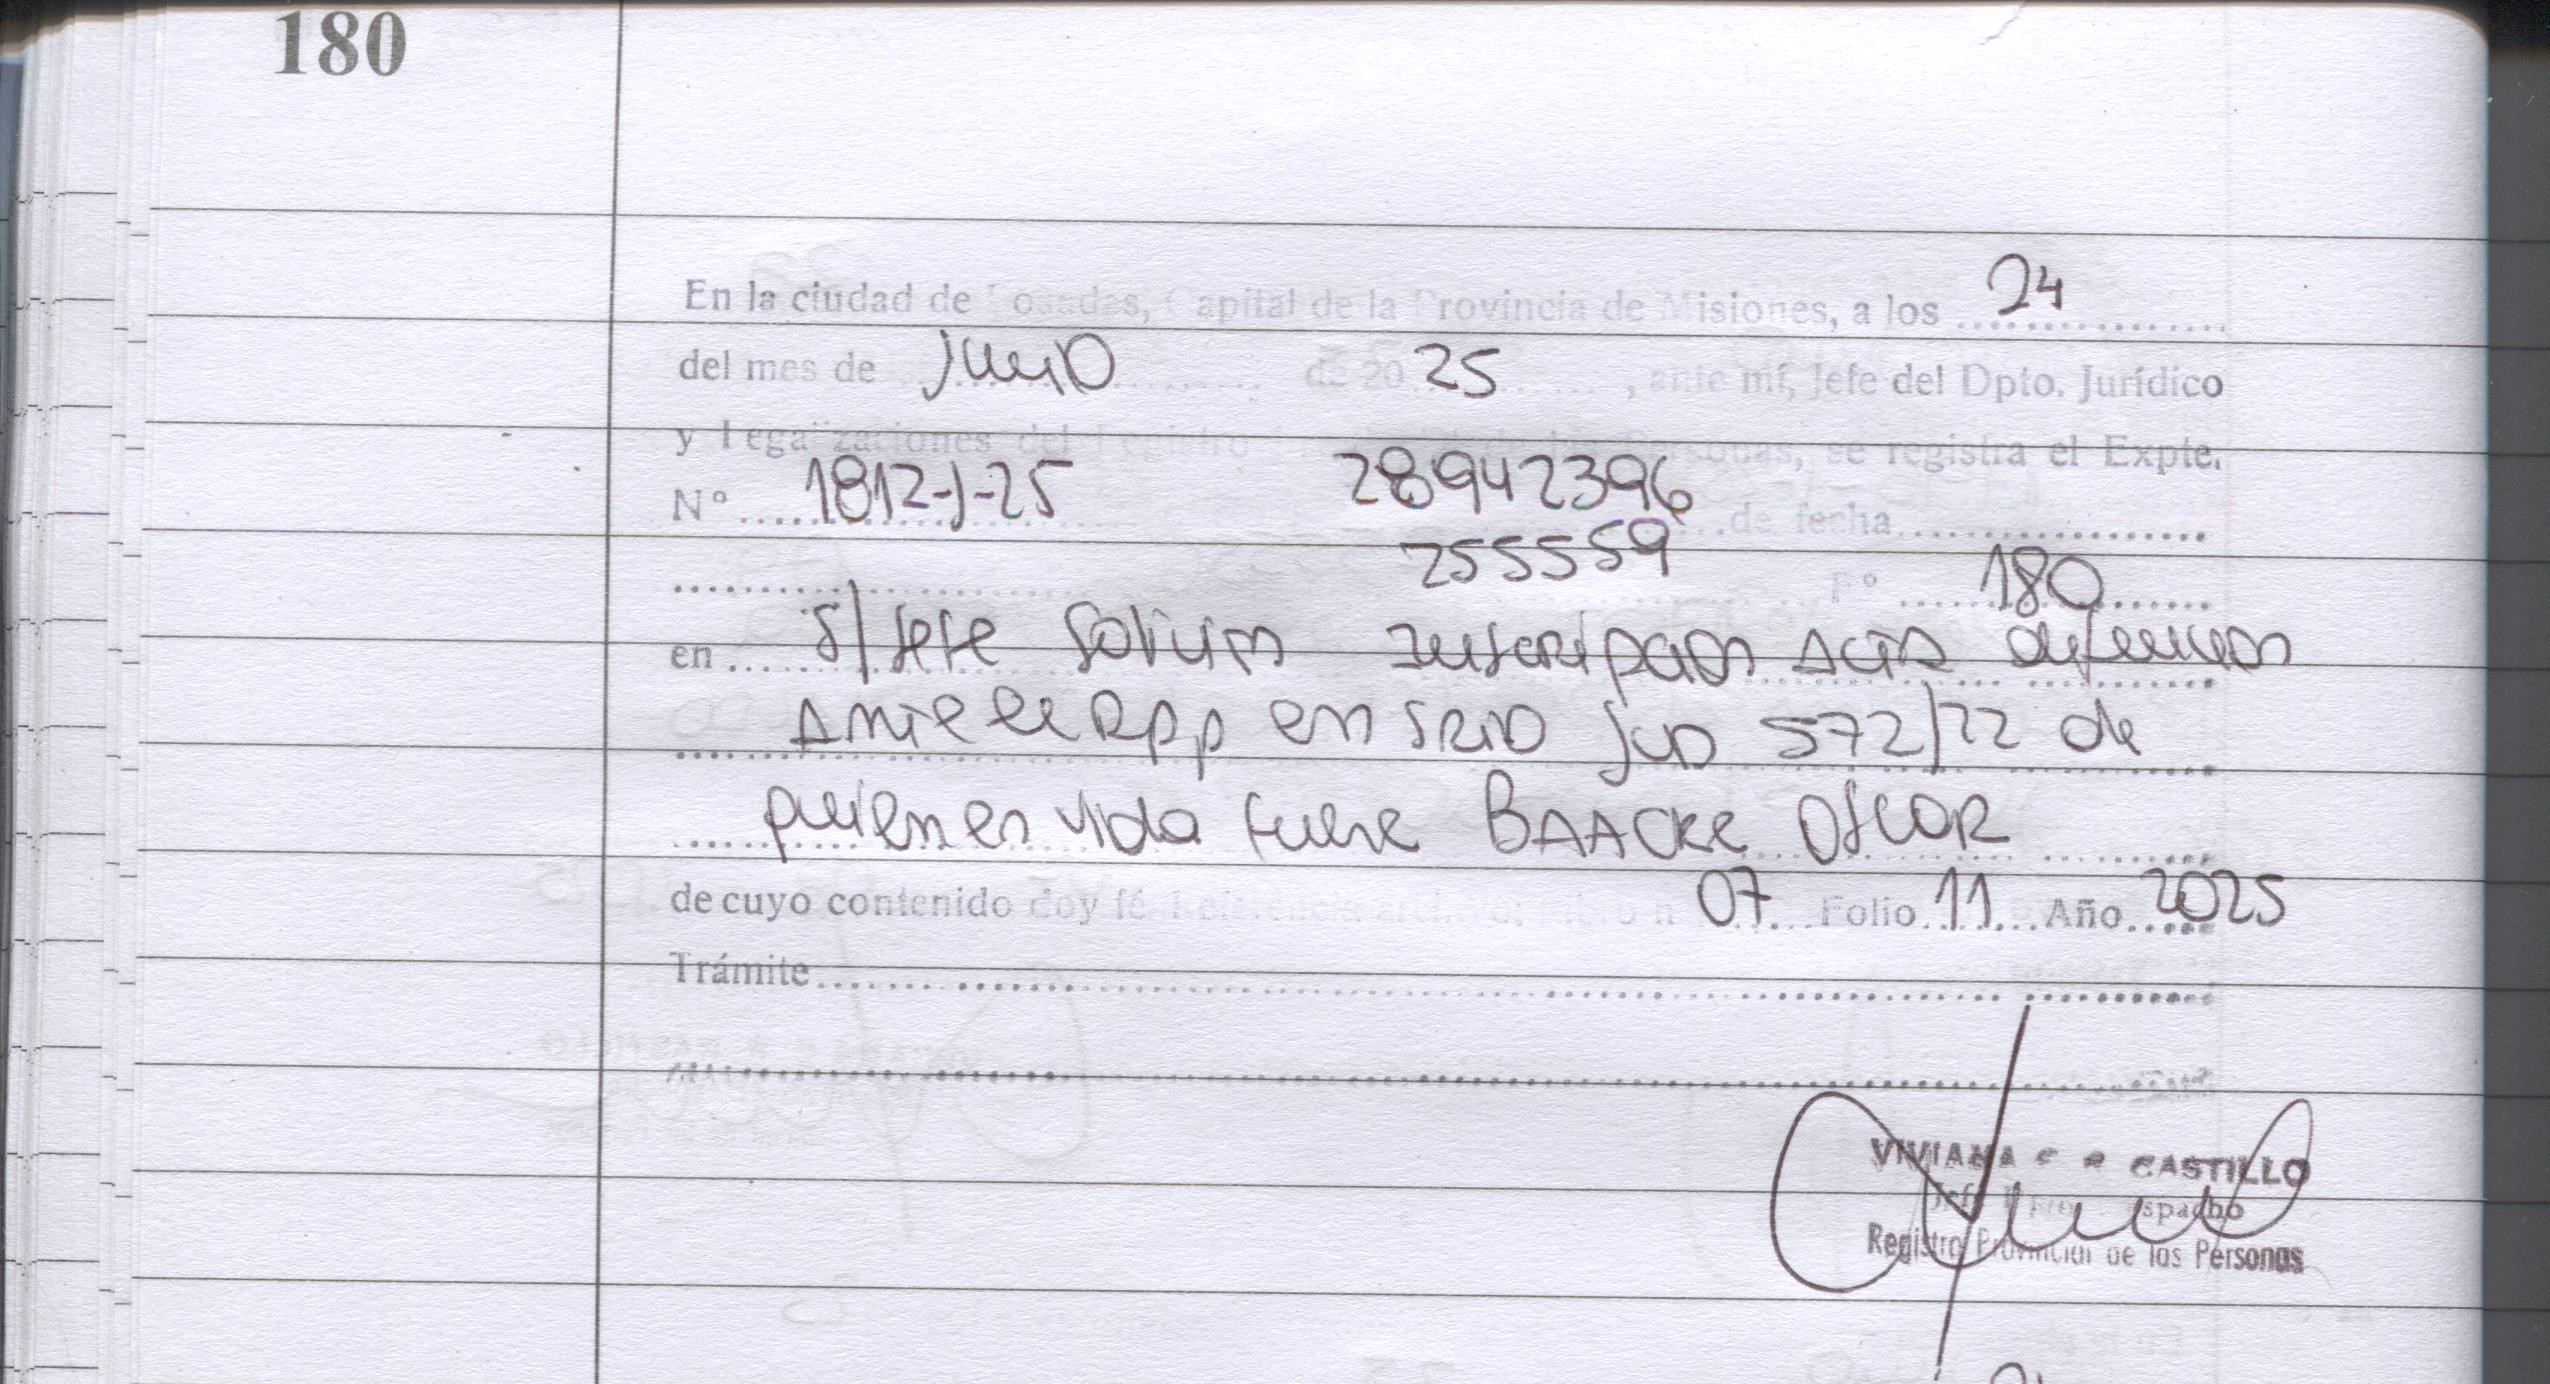 180
En la ciudad de Posadas, Capital de la Provincia de Misiones, a los 24
del mes de Junio de 20 25, ante mí, Jefe del Dpto. Jurídico
y Legalizaciones del Registro de las Personas, se registra el Expte.
Nº 1812-J-25 28942396 de fecha
255559 Fº 180
en S/ Jefe Solicita Inscripcion Acta defuncion
Ante el RPP en Jcio Jud 572/22 de
quien en vida fuere BAACKE OSCAR
de cuyo contenido doy fé. 07 Folio 11 Año 2025
Trámite
VIVIANA CASTILLO
Registro Provincial de las Personas